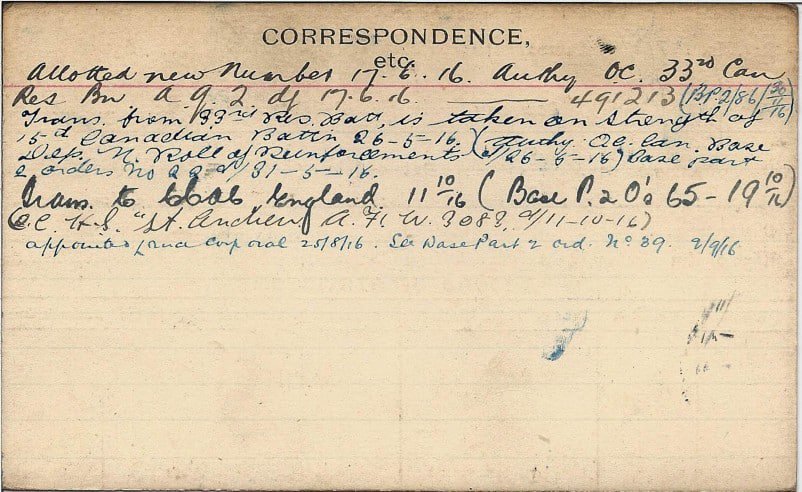 CORRESPONDENCE,
etc.
Allotted new Number 17.6.16. Authy O.C. 33rd Can
Res Bn A.G. 2 df 17.6.16. 491213 (BP2/86 (30/11/16)
Trans. from 33rd Res. Batt. is taken on strength of
15th Canadian Battn 26-5-16. (Authy. O.C. Can. Base
Dep. N. Roll of Reinforcements d/26-5-16) Base part
2 orders No 22 d/31-5-16.
Trans. to England. 11 10/16 (Base P. 2 O's 65-19 10/16)
(O.C. H.S. "St. Andrew A.F.W. 3083, d/11-10-16)
appointed Corporal 25/8/16. See Base Part 2 ord. No 39. 2/9/16